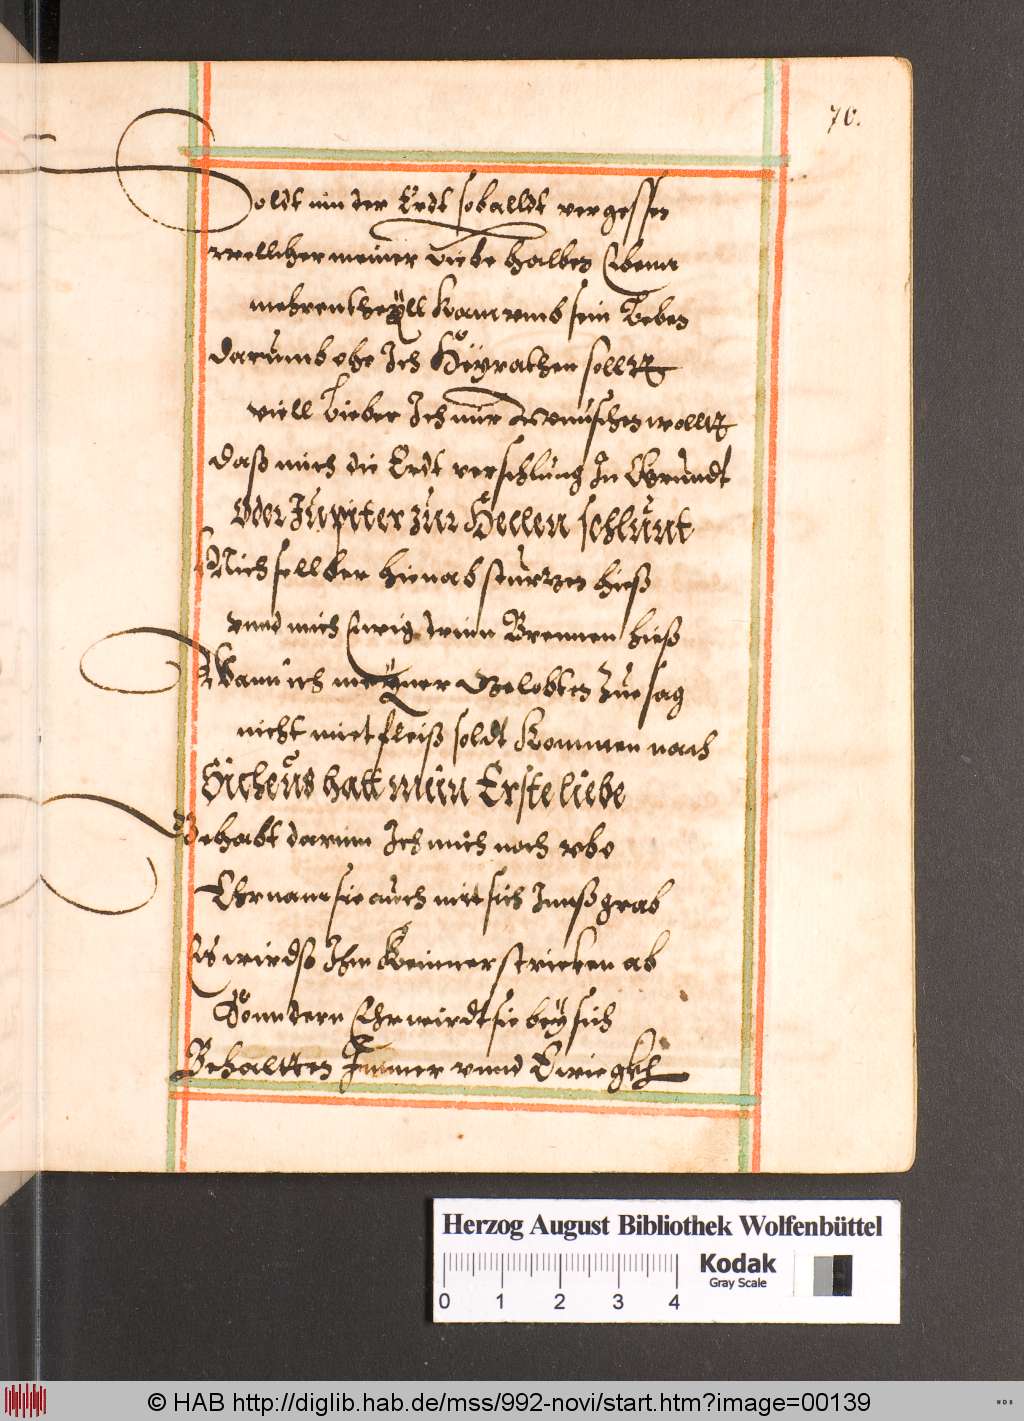 70.
Soldt inn der Erdt soballdt vergessen
wellcher meiner Liebe halben Ebenn
mehrentheÿll kam vmb sein Leben
darumb ehe Ich Heÿrathen sollt
viell Lieber Ich mir Wunschen wollt
daß mich die Erdt verschlung In Grundt
Oder Jupiter zur Hellen schlunt
Mich sellber hienab sturtzen hieß
vnnd mich Ewig drinn Brennen hieß
Wann ich meÿner Gelobten Zuesag
nicht miet fleiß soldt Kommen nach
Sicheus hatt mein Erste liebe
Gehabt darinn Ich mich noch vbe
Ehr nam sie auch mit sich Innß grab
Es wirdß Ihm Keinner stricken ab
Sonndern Ehr wirdt sie beÿ sich
Behaltten Immer vnnd Ewiegkh
Herzog August Bibliothek Wolfenbüttel
Kodak
Gray Scale
0 1 2 3 4
© HAB http://diglib.hab.de/mss/992-novi/start.htm?image=00139